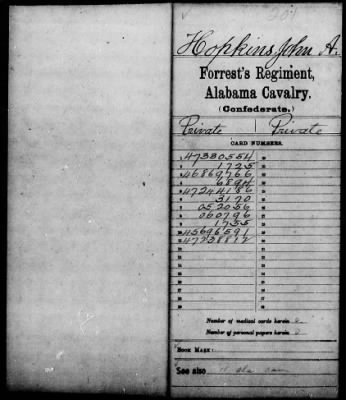 Hopkins, John A.
Forrest's Regiment,
Alabama Cavalry.
(Confederate.)
Private | Private
CARD NUMBERS.
1 47380554
2 1725
3 46869766
4 6894
5 47244186
6 3170
7 052056
8 060796
9 1755
10 45696591
11 47238812
Number of medical cards herein 0
Number of personal papers herein 0
BOOK MARK:
See also